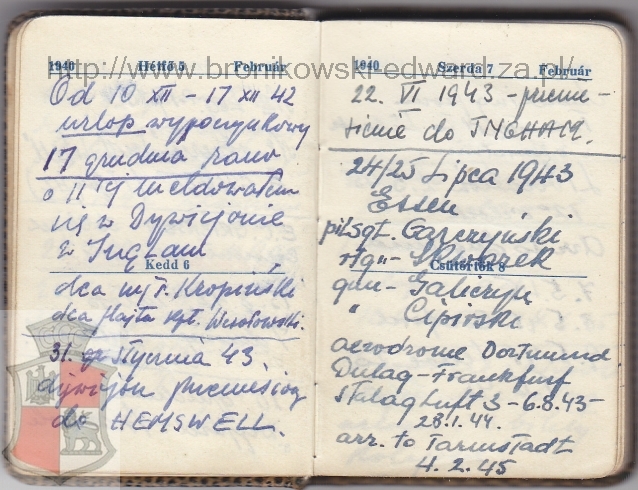 http://www.bronikowski-edward.za.pl/
1940 Hétfő 5 Február
Od 10 XII – 17 XII 42
urlop wypoczynkowy
17 grudnia rano
o 11 tej meldowałem
się w Dywizjonie
w Ingham
Kedd 6
dca mjr. Kropiński
dca flajta kpt. Wesołowski.
31. go stycznia 43.
dywizjon przeniesiony
do HEMSWELL.
1940 Szerda 7 Február
22. VI 1943 – przenie-
sienie do INGHAM.
24/25 Lipca 1943
Essen
pil. sgt. Garczyński
Csütörtök 8
gun – Galiczyn
" Cipirski
aerodrome Dortmund
Dulag – Frankfurt
Stalag Luft 3 – 6.8.43 –
28.1.44.
arr. to Tarmstadt
4.2.45